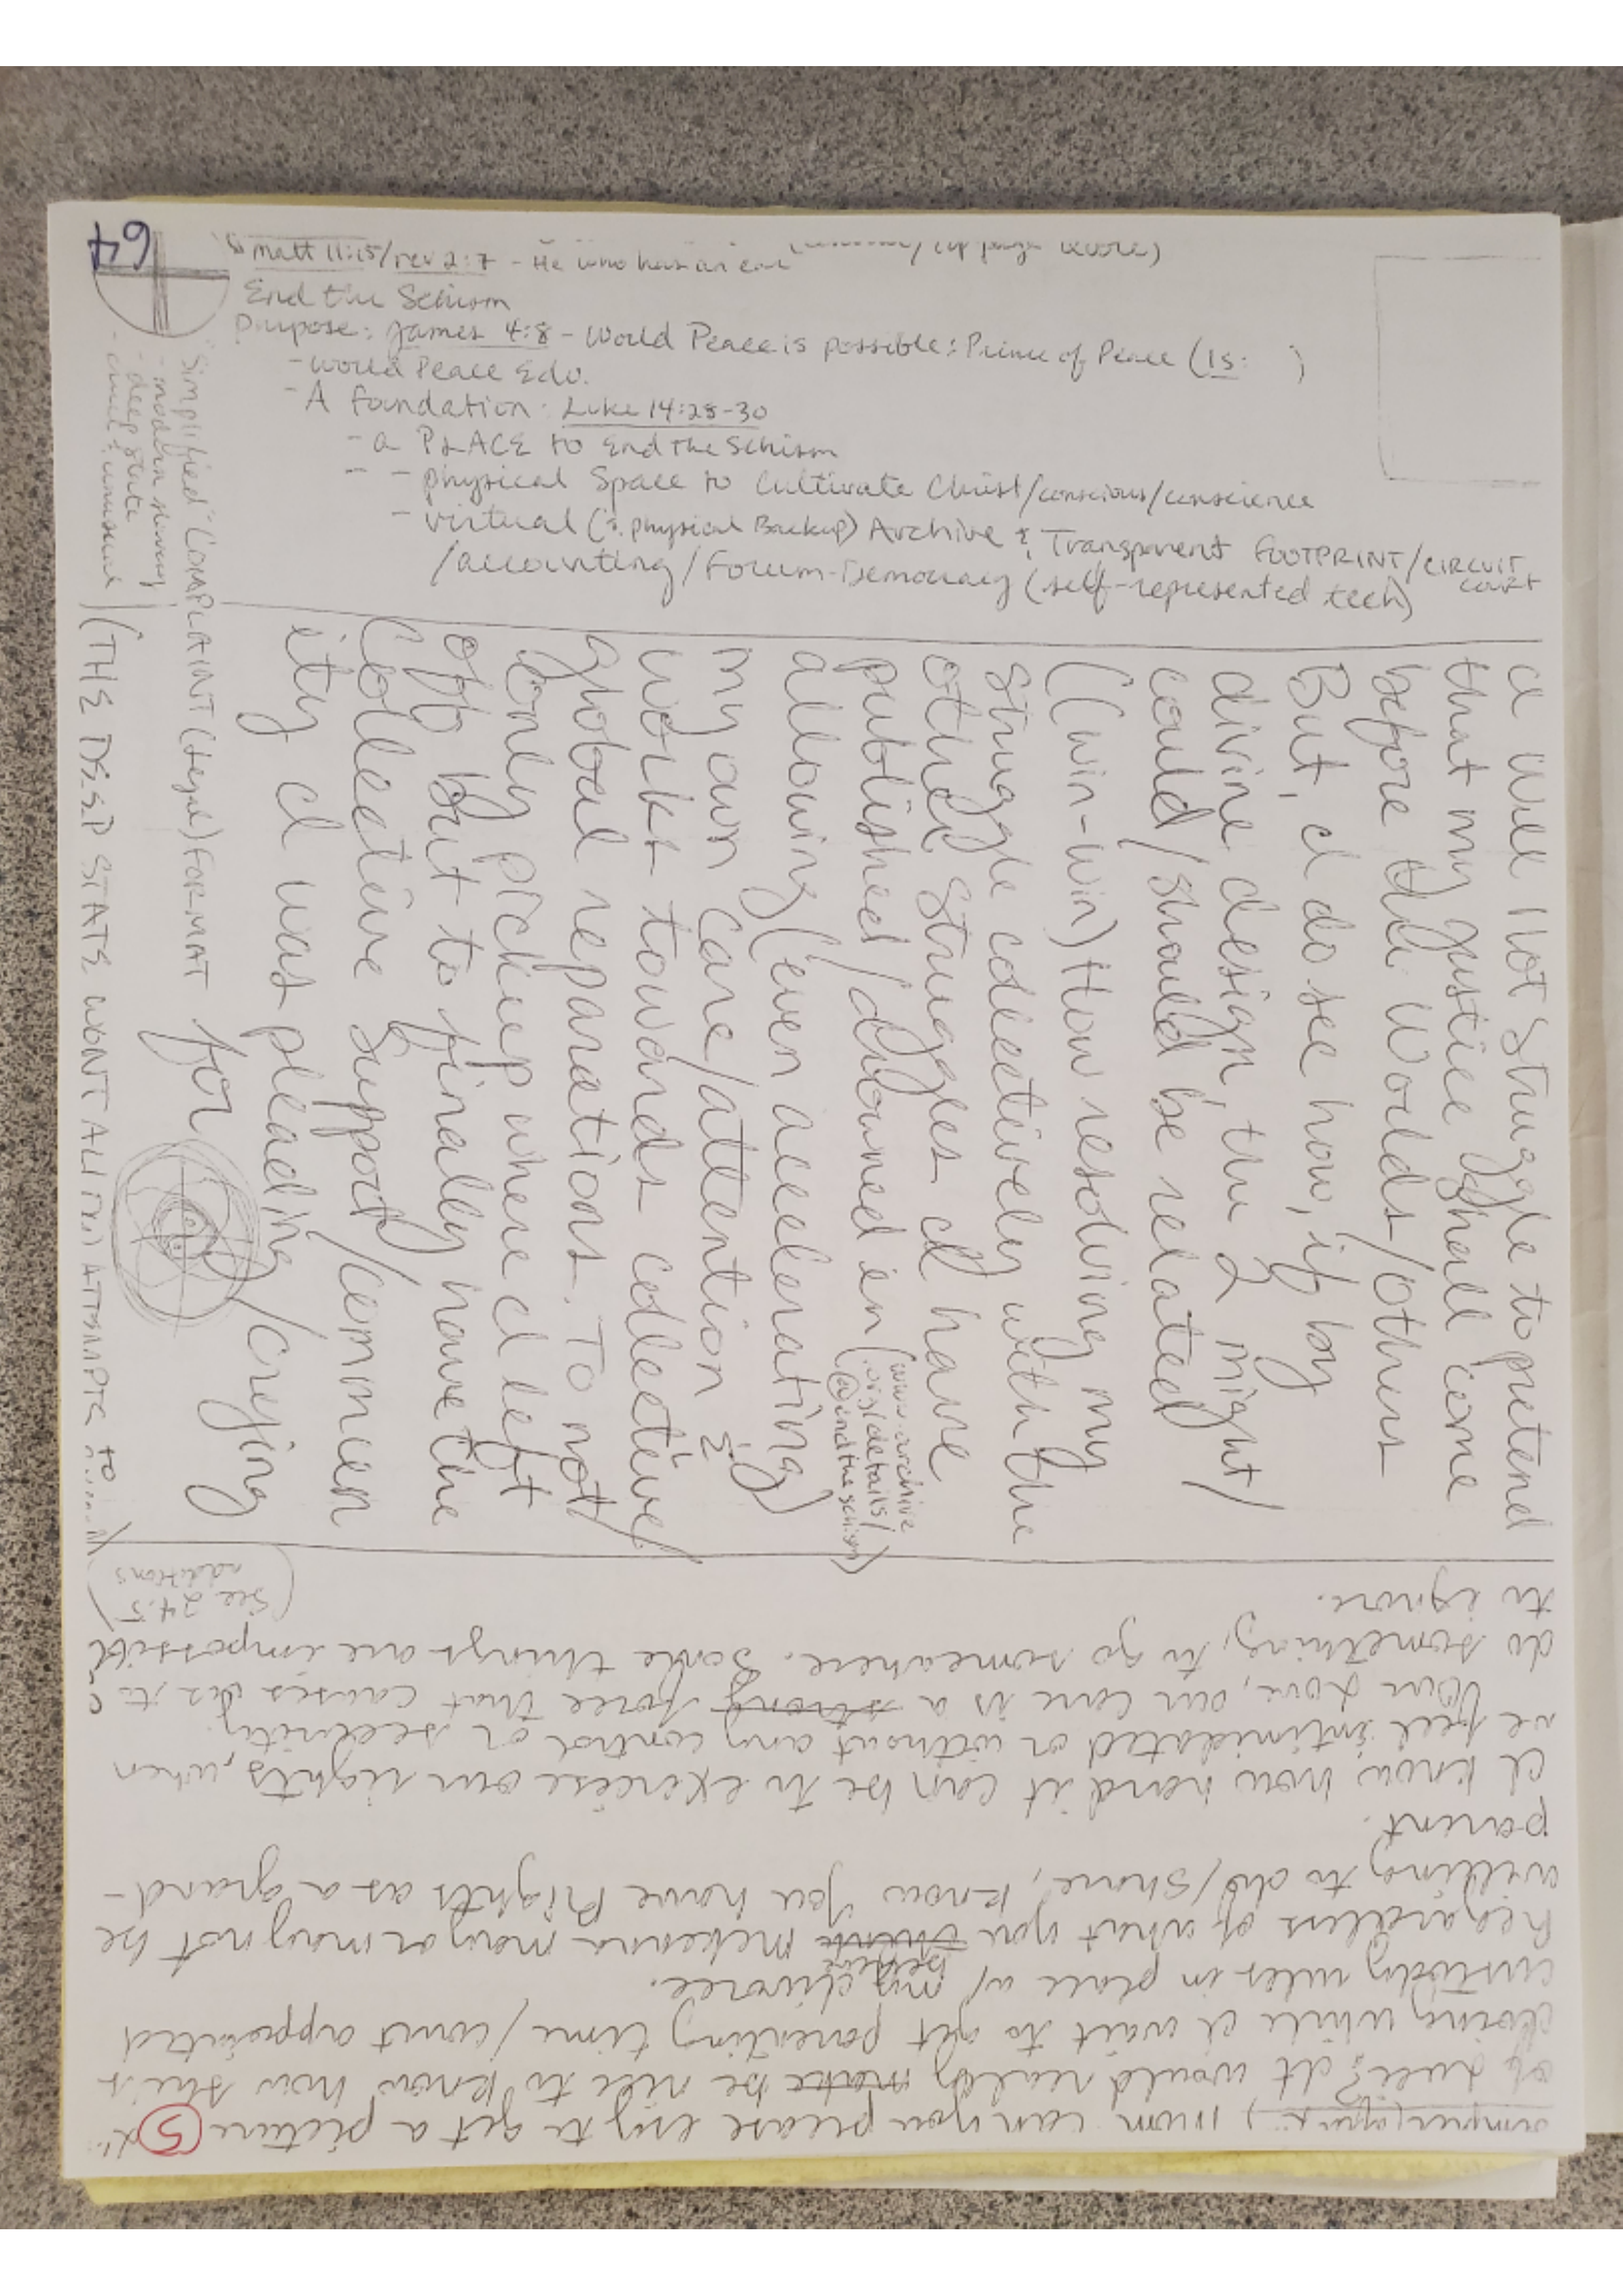 64
Matt 11:15/rev 2:7 - He who has an ear
End the Schism
Purpose: James 4:8 - World Peace is possible: Prince of Peace (Is: )
- World Peace Edu.
- A foundation: Luke 14:28-30
- a PLACE to End the Schism
- - physical Space to Cultivate Christ/conscious/conscience
- virtual (& physical Backup) Archive & Transparent FOOTPRINT/CIRCUIT court
/accounting/Forum-Democracy (self-represented tech)
I will not Struggle to pretend
that my justice shall come
before the World's/others
But, I do see how, if by
divine design, the 2 might/
could/should be related
(win-win) How resolving my
struggle collectively with the
other Struggles I have
published/divulged in (www.archive
.org/details/
@endtheschism)
allowing (even accelerating)
my own care/attention &
works towards collective/
global reparations. To not/
only pick up where I left
off but to finally have the
Collective Support/common
ity I was pleading
for /crying
"Simplified" COMPLAINT (legal) FORMAT
- modern slavery
deep state
- cruel & unusual
(THE DEEP STATE WONT ALLOW ATTEMPTS to
5
mom can you please try to get a picture
of It would really make be nice to know how she's
doing while I wait to get parenting time/court appointed
custody rules in place w/ my divorce.
before
Regardless of what you think mekenna may or may not be
willing to do/share, know you have Rights as a grand-
parent.
I know how hard it can be to exercise our rights, when
we feel intimidated or without any control or security.
Your love, our care is a strong force that causes us to
do something, to go somewhere. Some things are impossible
to ignore.
(see 24.5
additions